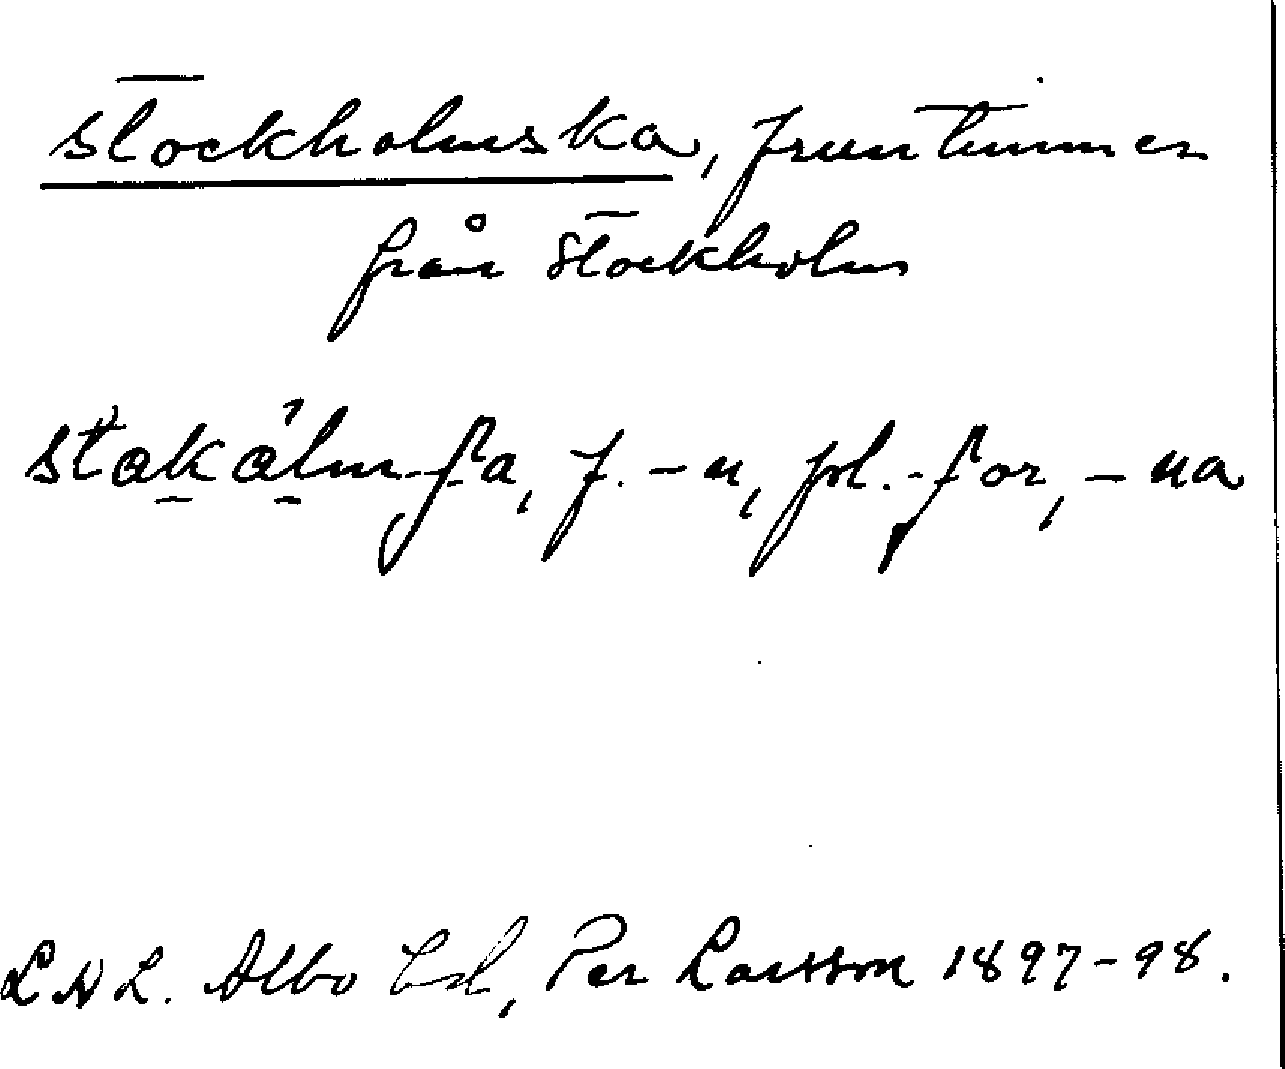 stockholmska, fruntimmer
från Stockholm
stakálm-ʃa, f. -n, pl. -ʃor, -na
L N L. Albo hd, Per Larsson 1897-98.